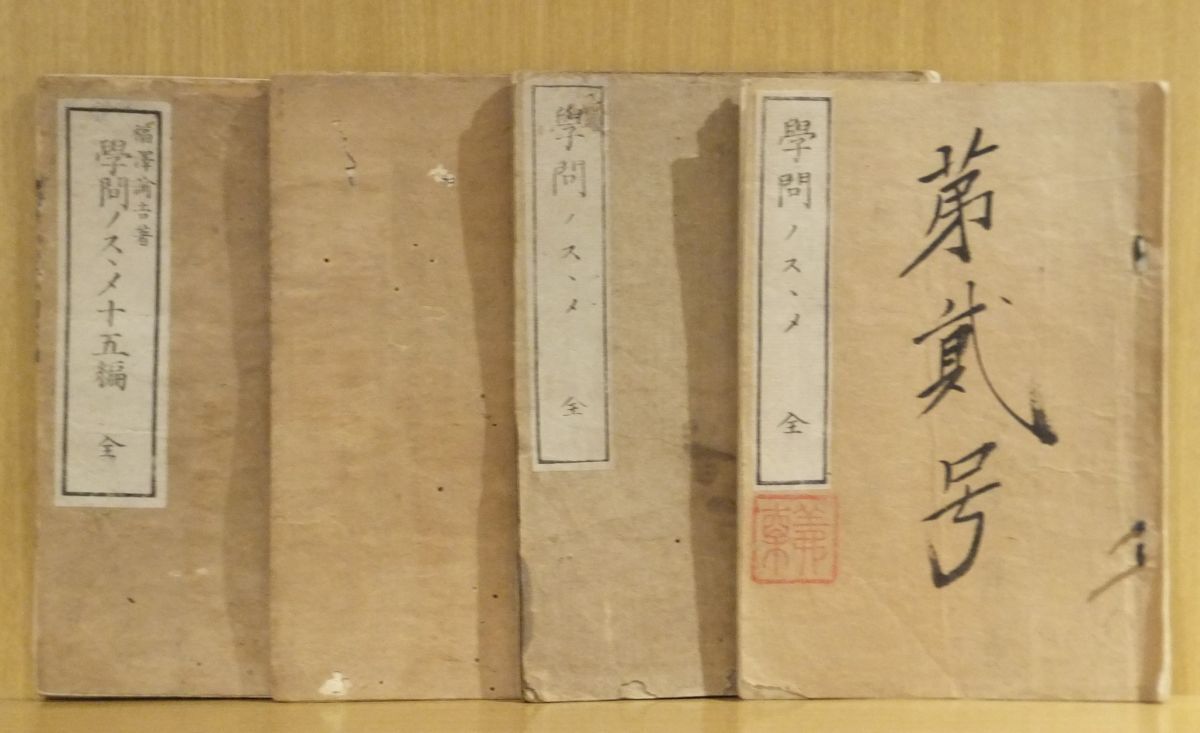 第貳号
學問ノスヽメ
全
學問ノスヽメ
全
福澤諭吉著
學問ノスヽメ十五編
全